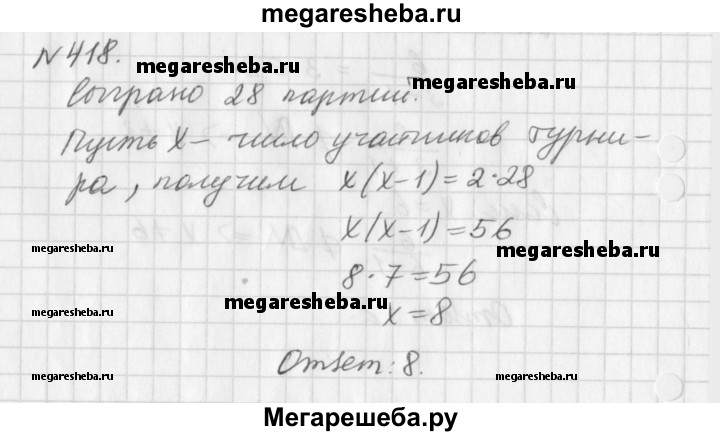 megaresheba.ru
N 418.
megaresheba.ru
Сыграно 28 партий.
megaresheba.ru
megaresheba.ru
Пусть x - число участников турни-
ра, получим x(x-1)=2·28
x(x-1)=56
megaresheba.ru
megaresheba.ru
8·7=56
megaresheba.ru
x=8
megaresheba.ru
megaresheba.ru
Ответ: 8.
megaresheba.ru
megaresheba.ru
Мегарешеба.ру